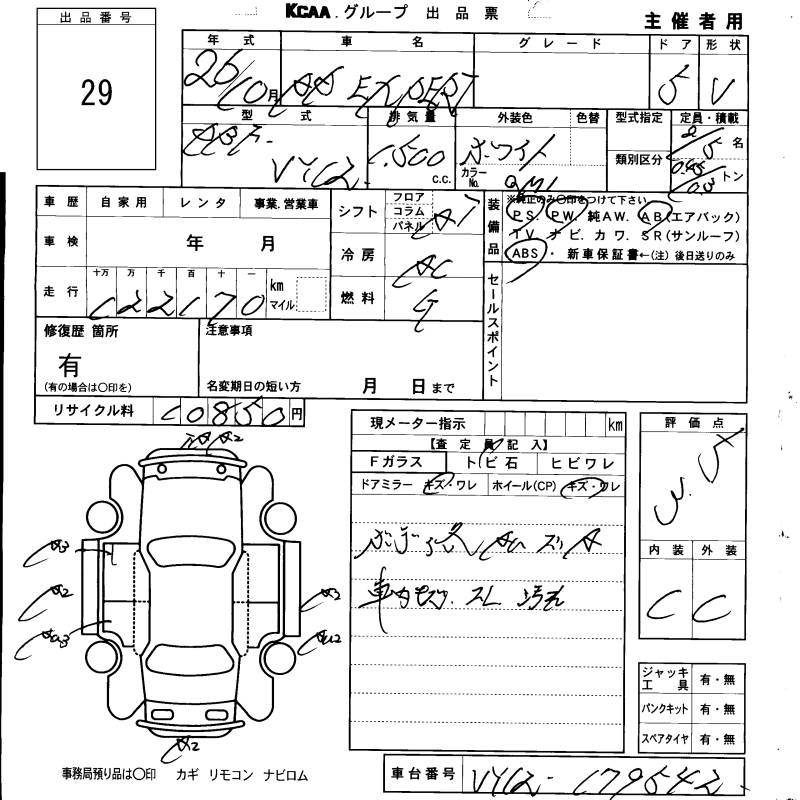 KCAA.グループ 出品票
主催者用
出品番号
29
年式 車名 グレード ドア 形状
26/10月 AD EXPERT 5 V
型式 排気量 外装色 色替 型式指定 定員・積載
1,500 c.c. ホワイト カラーNo. QM1 類別区分 2/5名
トン
車歴 自家用 レンタ 事業.営業車
車検 年 月
走行 十万 万 千 百 十 一 km マイル
122170
シフト フロア コラム パネル AT
冷房 AC
燃料 G
装備品
※純正のみ〇印をつけて下さい
PS. PW. 純AW. AB(エアバック)
TV ナビ. カワ. SR(サンルーフ)
ABS・新車保証書←(注)後日送りのみ
セールスポイント
修復歴 箇所
有
(有の場合は〇印を)
注意事項
名変期日の短い方 月 日まで
リサイクル料 10850円
現メーター指示 km
【査定員記入】
Fガラス トビ石 ヒビワレ
ドアミラー キズ・ワレ ホイール(CP) キズ・ワレ
車内 スレ 汚れ
評価点
3.5
内装 外装
C C
A2
A3
A2
A2
A2
ジャッキ工具 有・無
パンクキット 有・無
スペアタイヤ 有・無
事務局預り品は〇印 カギ リモコン ナビロム
車台番号 VY12-179542